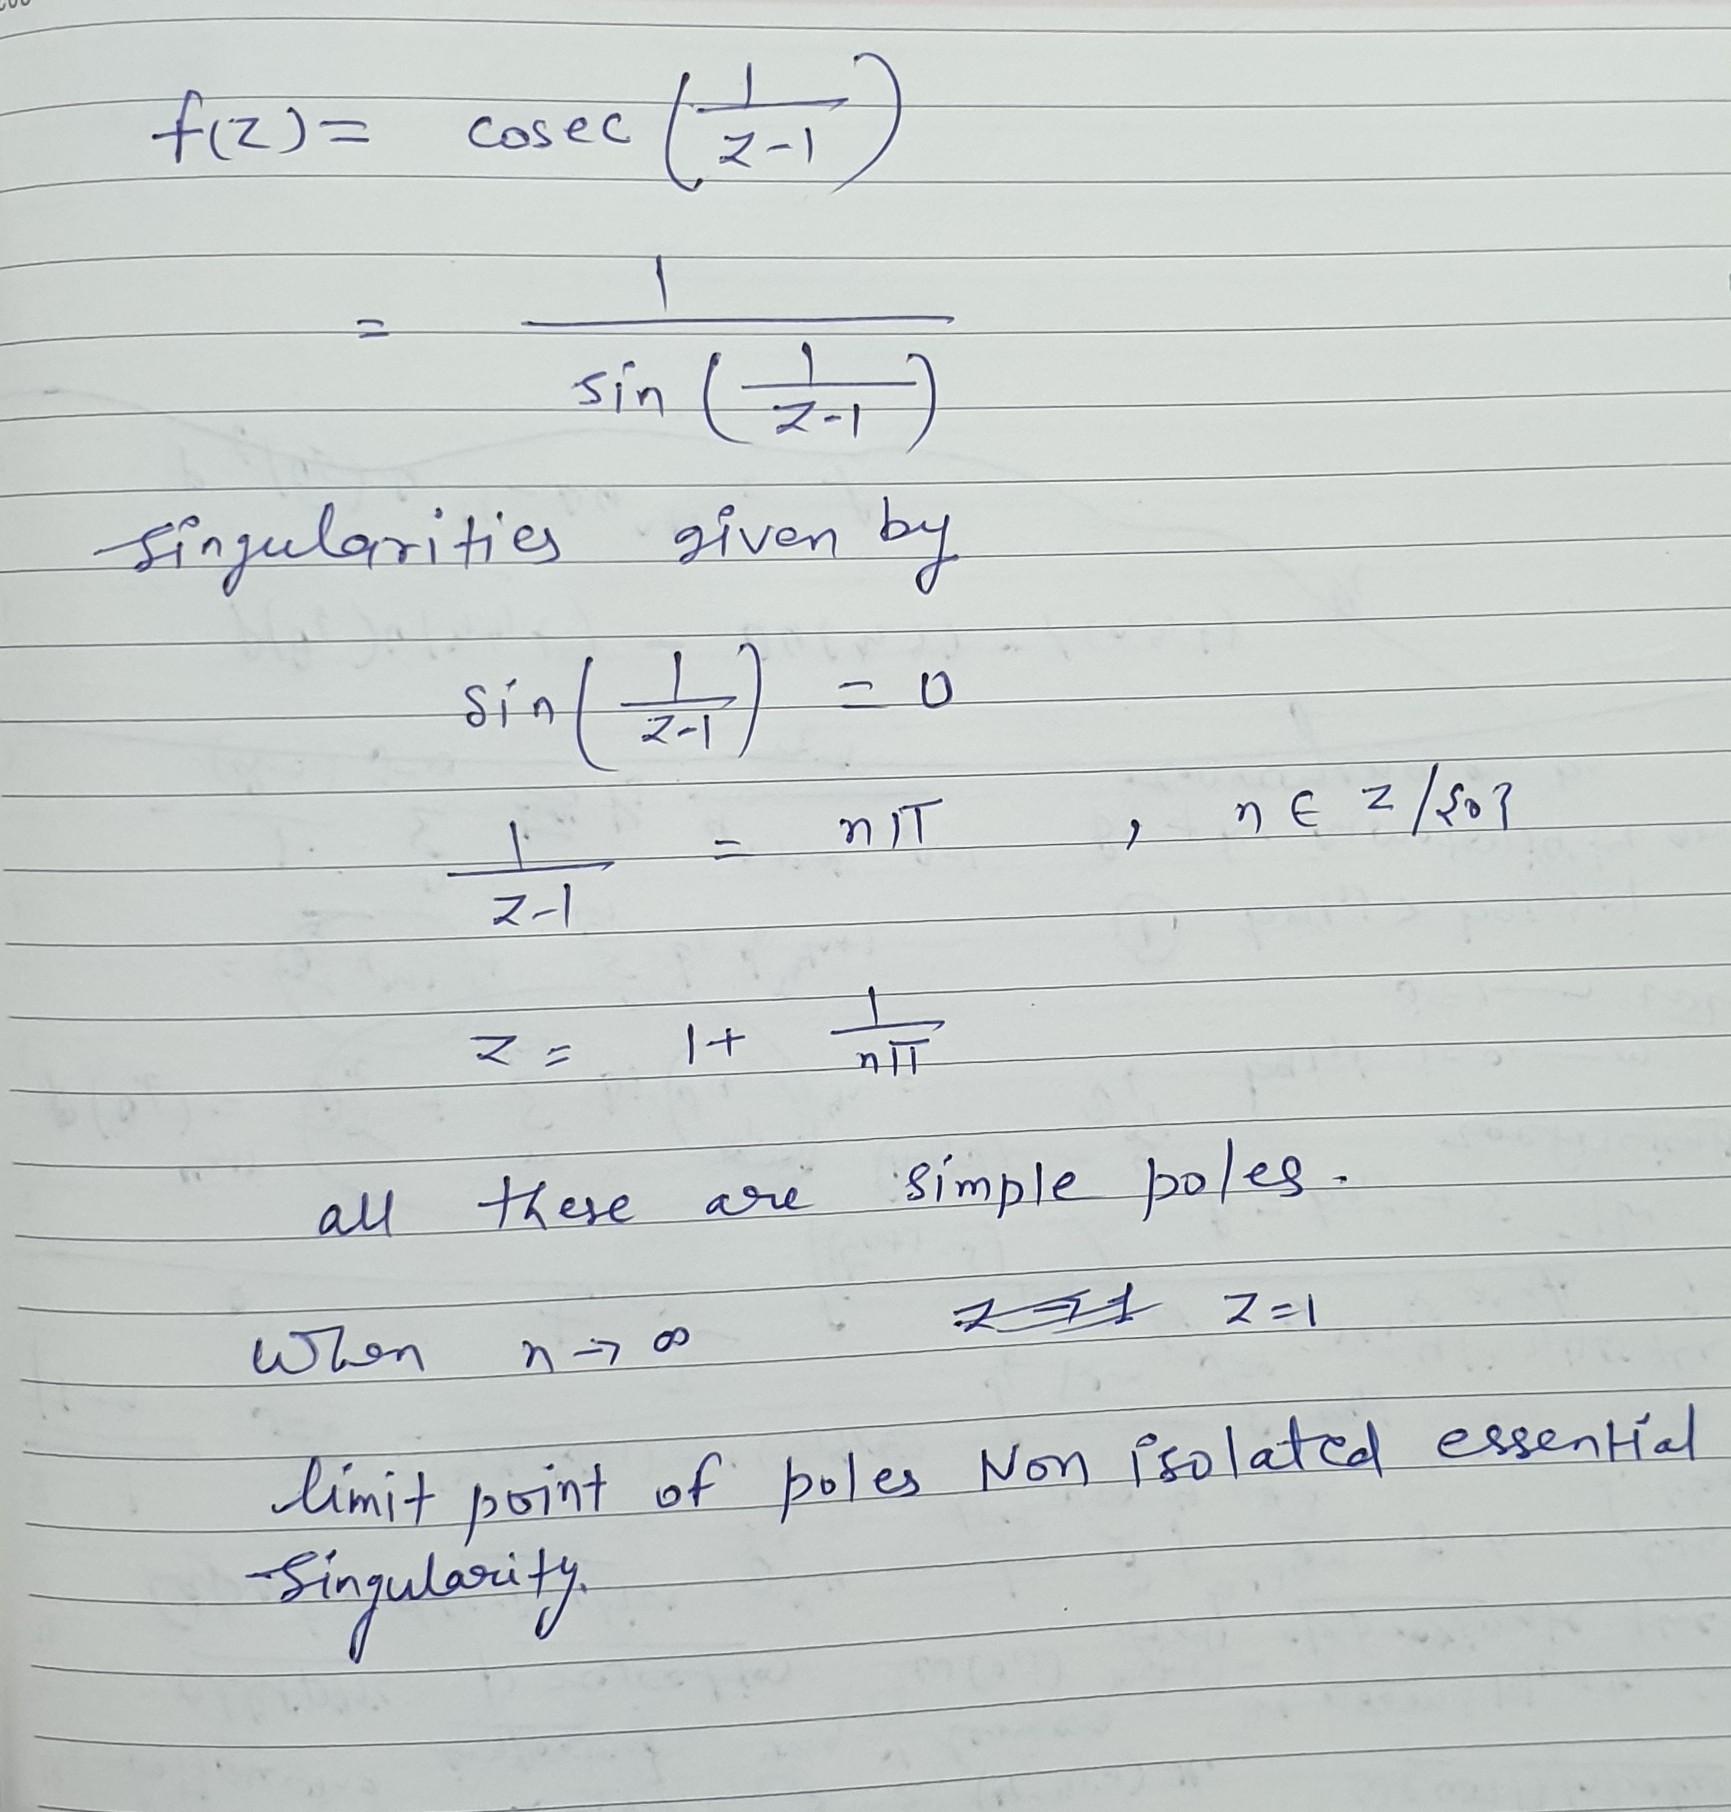 f(z) = cosec (1/(z-1))
= 1/(sin (1/(z-1)))
Singularities given by
sin (1/(z-1)) = 0
1/(z-1) = nπ , n ∈ z/{0}
z = 1 + 1/(nπ)
all these are simple poles.
When n → ∞ z=1
limit point of poles Non isolated essential
Singularity.